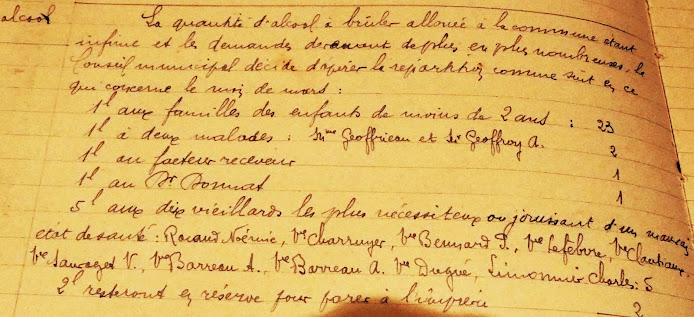 alcool La quantité d'alcool à brûler allouée à la commune étant
infime et les demandes devenant de plus en plus nombreuses, le
Conseil municipal décide d'opérer la répartition comme suit en ce
qui concerne le mois de mars :
1l aux familles des enfants de moins de 2 ans : 23
1l à deux malades : Mme Geoffrieau et Mr Geoffroy A. 2
1l au facteur receveur 1
1l au Dr Donnat 1
5l aux dix vieillards les plus nécessiteux ou jouissant d'un mauvais
état de santé : Rocaud Noémie, Vve Charruyer, Vve Bernard P., Vve Lefebvre, Vve
Vve Sauvaget V., Vve Barreau A., Vve Barreau A. Vve Dugué, Simonnin Charles : 5
2l resteront en réserve pour parer à l'imprévu 2